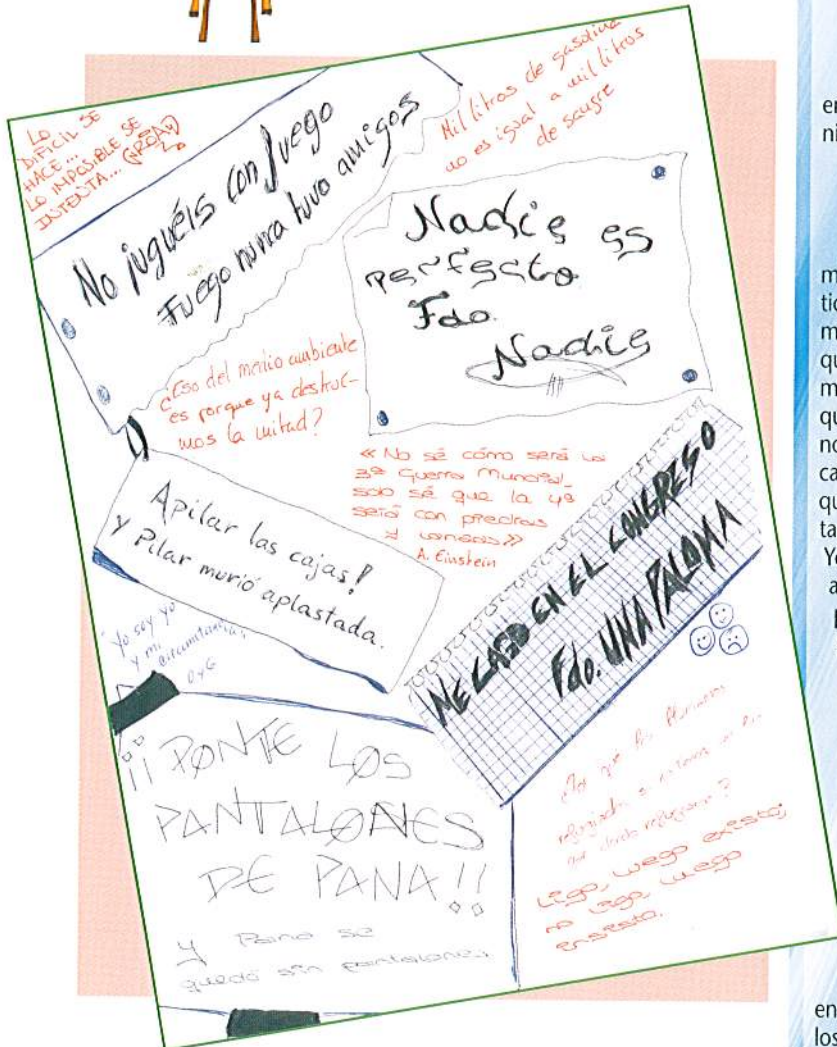 LO
DIFICIL SE
HACE...
LO IMPOSIBLE SE
INTENTA...
No juguéis con fuego
Fuego nunca tuvo amigos
Mil litros de gasolina
no es igual a mil litros
de sangre
Nadie es
perfecto
Fdo.
Nadie
¿Eso del medio ambiente
es porque ya destrui-
mos la mitad?
«No sé cómo será la
3ª Guerra Mundial,
solo sé que la 4ª
será con piedras
y lanzas»
A. Einstein
Apilar las cajas!
y Pilar murió aplastada.
ME CAGO EN EL CONGRESO
Fdo. UNA PALOMA
Yo soy yo
y mi
circunstancia,
OyG
¡¡PONTE LOS
PANTALONES
DE PANA!!
y Pana se
quedó sin pantalones.
¿Por qué los llamamos
refugiados si no tienen
donde refugiarse?
Ligo, luego existo;
no ligo, luego
insisto.
en
ni
m
tic
m
qu
m
qu
no
ca
qu
ta
Yo
a
en
los